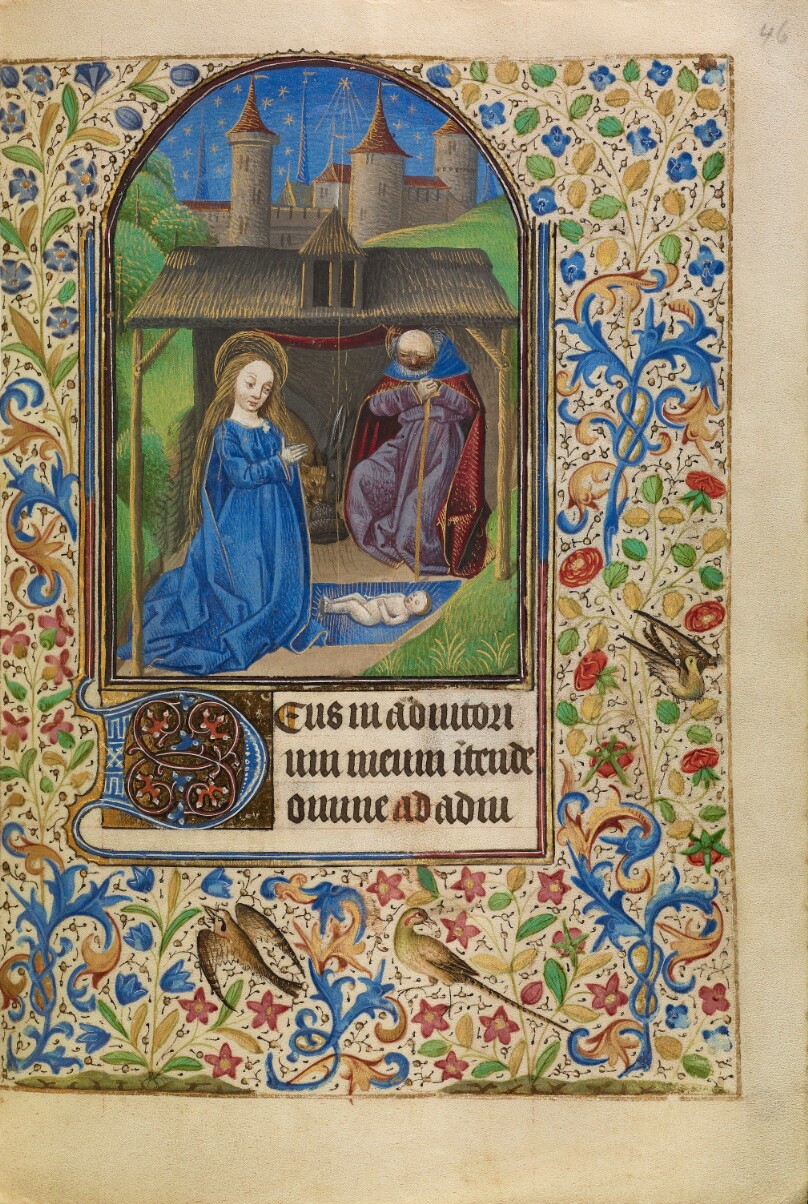 46
Deus in adiutori
um meum ītende
domine ad adiu